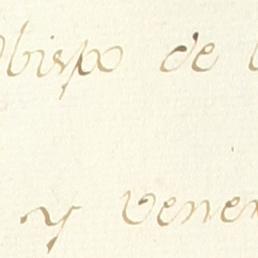 Obispo de
y vener